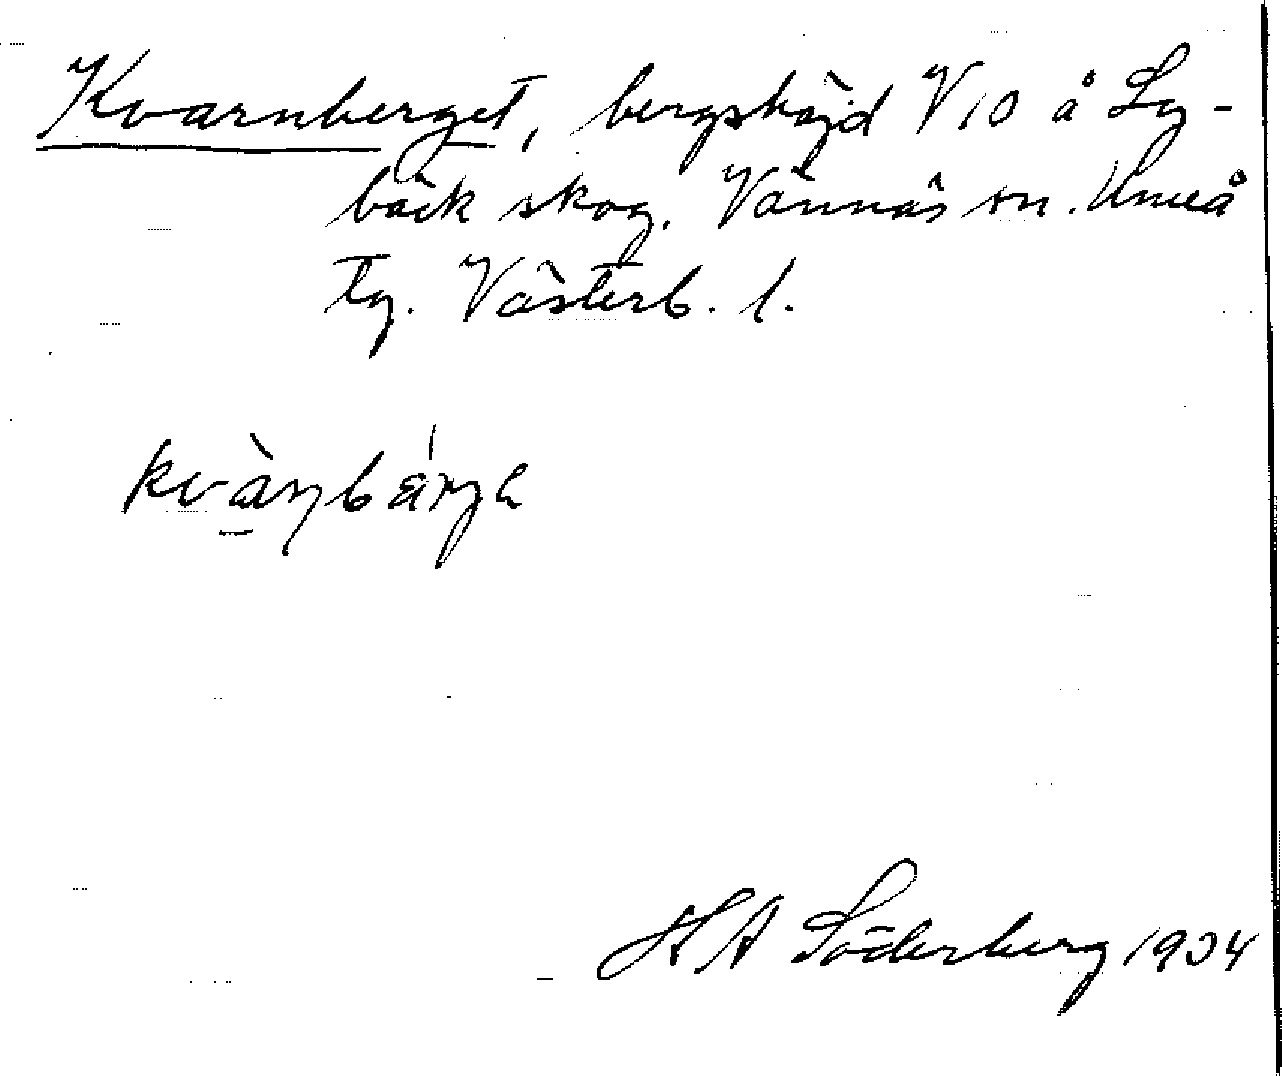 Kvarnberget, bergshöjd V 10 å Ly-
bäck skog. Vännäs sn. Umeå
tg. Västerb. l.
kvàrnbárje
H A Söderberg 1934